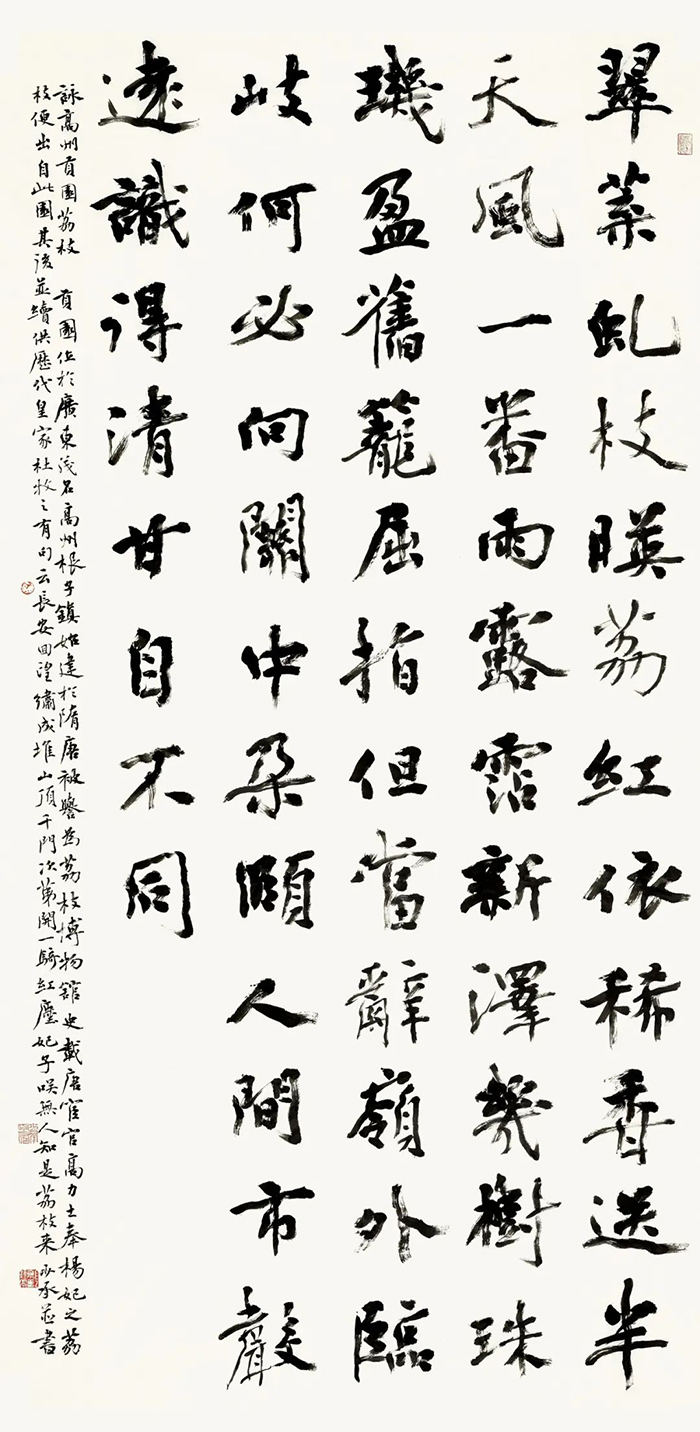 翠葉虬枝暎荔紅依稀香送半
天風一番雨露霑新澤幾樹珠
璣盈舊籠屈指但當辭嶺外臨
歧何必問關中朵頤人間市聲
遠識得清甘自不同
詠高州貢園荔枝 貢園位於廣東茂名高州根子鎮始建於隋唐被譽為荔枝博物館史載唐宦官高力士奉楊妃之荔
枝便出自此園其後並續供歷代皇家杜牧之有句云長安回望繡成堆山頂千門次第開一騎紅塵妃子咲無人知是荔枝來並書